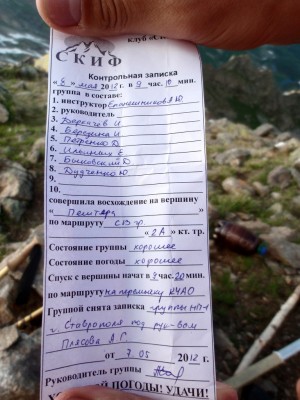 клуб «С
СКИФ
Контрольная записка
«8» мая 2012 в 9 час. 10 мин.
группа в составе:
1. инструктор Ю
2. руководитель
3. И
4. Бередина И
5. Петренко Д
6. Е
7. Быковский Д
8. Дудченко Ю
9.
10.
совершила восхождение на вершину
«
»
по маршруту СВ гр.
«2А» кт. тр.
Состояние группы хорошее
Состояние погоды хорошее
Спуск с вершины начат в 9 час. 20 мин.
по маршруту на перемычку КЧАО
Группой снята записка группы НП-1
г. Ставрополя под рук-вом
Плясова А Г
от 7.05 2012 г.
Руководитель группы
ПОГОДЫ! УДАЧИ!